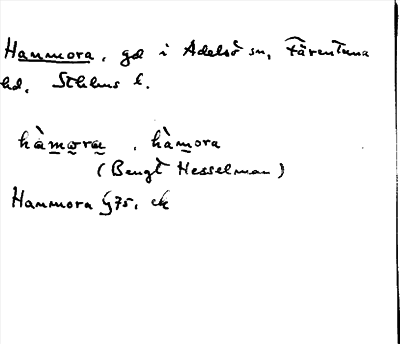 Hammora, gd i Adelsö sn, Färentuna
hd. Sthlms l.
hàmora, hàmora
(Bengt Hesselman)
Hammora G75, ek